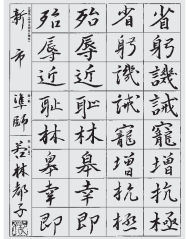 省躬譏誡寵增抗極
省躬譏誡寵增抗極
殆辱近耻林皋幸即
殆辱近耻林皋幸即
新市 準師 若林都子